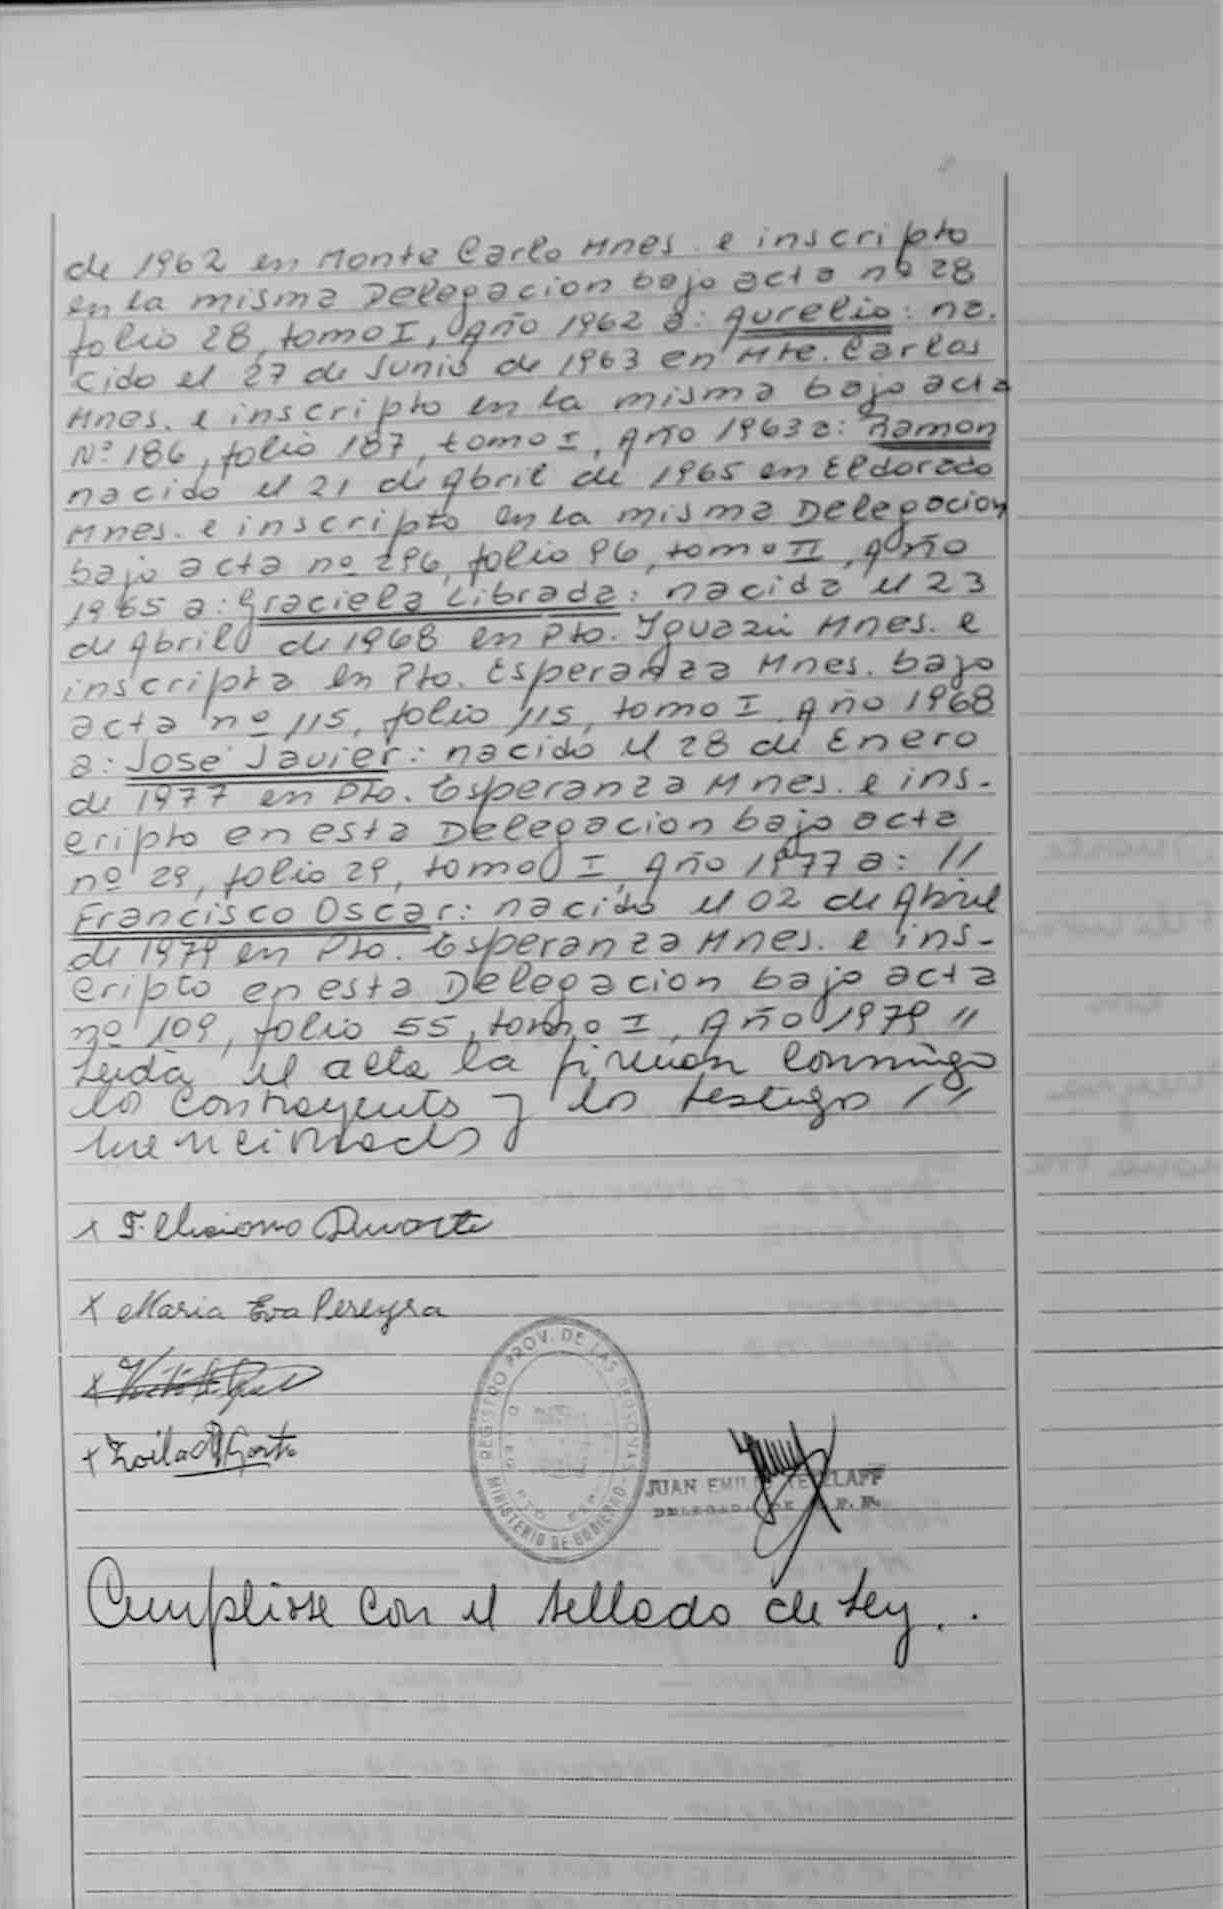 de 1962 en Monte Carlo Mnes. e inscripto
en la misma Delegacion bajo acta nº 28
folio 28, tomo I, Año 1962 a: Aurelio: na.
cido el 27 de Junio de 1963 en Mte. Carlos
Mnes. e inscripto en la misma bajo acta
Nº 186, folio 187, tomo I, Año 1963 a: Ramon
nacido el 21 de Abril de 1965 en Eldorado
Mnes. e inscripto en la misma Delegacion
bajo acta nº 296, folio 96, tomo II, Año
1965 a: Graciela Librada: nacida el 23
de Abril de 1968 en Pto. Iguazú Mnes. e
inscripta en Pto. Esperanza Mnes. bajo
acta nº 115, folio 115, tomo I, Año 1968
a: José Javier: nacido el 28 de Enero
de 1977 en Pto. Esperanza Mnes. e ins-
cripto en esta Delegacion bajo acta
nº 29, folio 29, tomo I, Año 1977 a: //
Francisco Oscar: nacido el 02 de Abril
de 1979 en Pto. Esperanza Mnes. e ins-
cripto en esta Delegacion bajo acta
nº 109, folio 55, tomo I, Año 1979 //
Leida el acta la firman conmigo
los contrayentes y los testigos / //
mencionados
x Feliciano Duarte
x Maria Eva Pereyra
x
x Zoila
REGISTRO PROV. DE LAS PERSONAS - MINISTERIO DE GOBIERNO -
JUAN EMILIO TETZLAFF
DELEGADO DE R. P.
Cumpliose con el sellado de Ley..